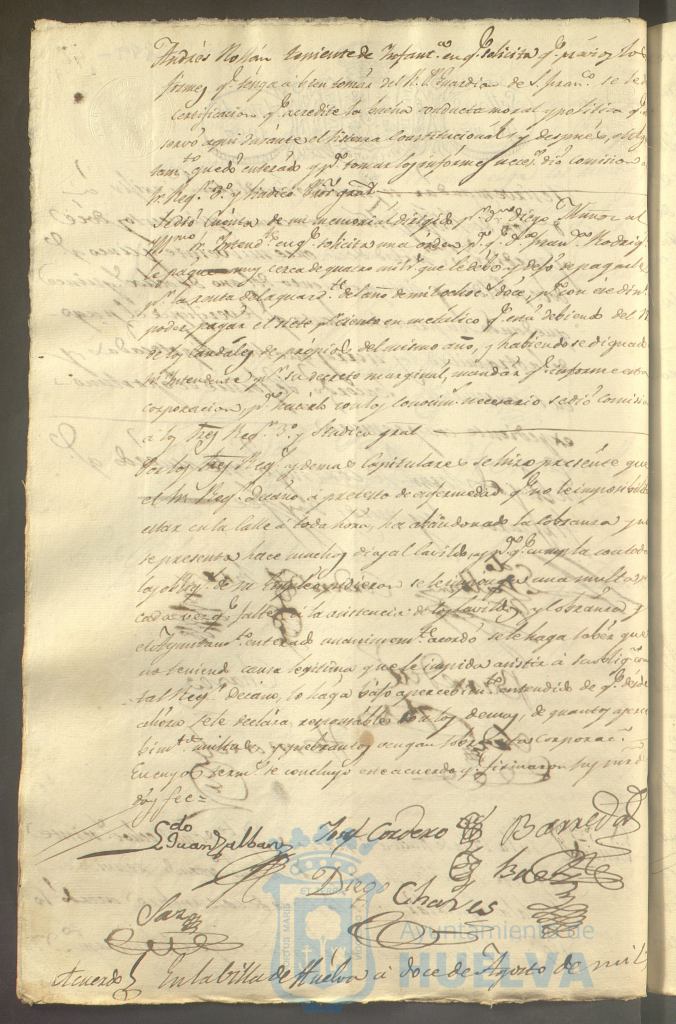 Andrés Roldán teniente de Infant.ª en q.e solicita q.e previos los
formes q.e tenga á bien tomar del R. P. Guardian de S. Fran.co se le
certificacion q.e acredite la buena conducta moral y politica q.e
servó aqui durante el Sistema Constitucional y despues, el Ay
tam.to quedó enterado y p.a tomar los informes neces.s dió comision a
Reg.r 3.º y Sindico Gral
Se dió cuenta de un memorial dirigido p.r D.n Diego Munoz al
Yll.mo Sr. Intend.te en q.e solicita una órden p.a q.e D. Fran.co Rodrig.
le pague muy cerca de quatro mil r.s que le debe y dejó de pagarle
p.r la renta del aguard.te del año de mil ochoc.s doce, p.a con ese din.
poder pagar el siete p.r ciento en metalico q.e está debiendo del
de los caudales de propios del mismo año, y habiendose dignado
Sr. Intendente p.r su decreto marginal, mandar q.e informe esta
corporacion, p.a hacerlo con los conocim.s necesarios se dió comisio
á los Sres Reg.r 3.º y Sindico gral
Por los Sres Reg.s y demas Capitulares se hizo presente que
el Sr. Reg.r Decano, a pretesto de enfermedad q.e no le imposibilita
estar en la calle á toda hora, ha abandonado la cobranza y
se presenta hace muchos dias al Cavildo, y p.a q.e cumpla con todas
las oblig.s de su empleo pidieron se le imponga una multa p.r
cada vez q.e falte á la asistencia de los Cavildos y cobranza y
el Ayuntam.to enterado unanimem.te acordó se le haga saber que
no teniendo causa legitima que le impida asistir á sus oblig.s con
tal Reg.r Decano, lo haga bajo apercebim.to entendido de q.e desde
ahora se le declara responsable con los demas, de quantos aperci
bim.tos multas y quebrantos vengan sobre esta corporac.n
En cuyos term.s se concluyó este acuerdo y firmaron sus mrd
doy fee=
Ldo Juan Galban Jph Cordero Barreda
Diego Chaves Baez
Saz
Acuerdo} En la billa de Huelva á doce de Agosto de mil
Ayuntamiento de
HUELVA